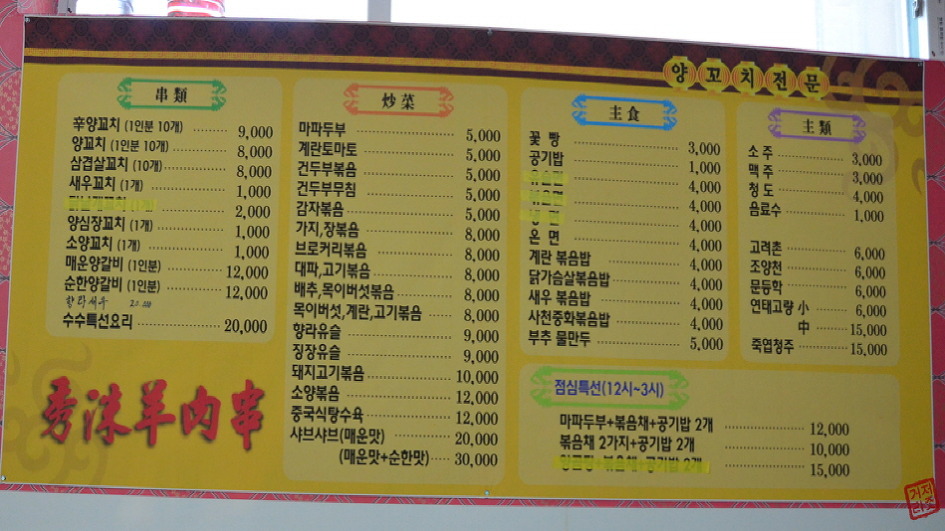 양꼬치전문
串類
辛양꼬치 (1인분 10개) 9,000
양꼬치 (1인분 10개) 8,000
삼겹살꼬치 (10개) 8,000
새우꼬치 (1개) 1,000
2,000
양심장꼬치 (1개) 1,000
소양꼬치 (1개) 1,000
매운양갈비 (1인분) 12,000
순한양갈비 (1인분) 12,000
향라새우
수수특선요리 20,000
秀洙羊肉串
炒菜
마파두부 5,000
계란토마토 5,000
건두부볶음 5,000
건두부무침 5,000
감자볶음 5,000
가지,장볶음 8,000
브로커리볶음 8,000
대파,고기볶음 8,000
배추,목이버섯볶음 8,000
목이버섯,계란,고기볶음 8,000
향라유슬 9,000
징장유슬 9,000
돼지고기볶음 10,000
소양볶음 12,000
중국식탕수육 12,000
샤브샤브(매운맛) 20,000
(매운맛+순한맛) 30,000
主食
꽃 빵 3,000
공기밥 1,000
4,000
4,000
4,000
온 면 4,000
계란 볶음밥 4,000
닭가슴살볶음밥 4,000
새우 볶음밥 4,000
사천중화볶음밥 4,000
부추 물만두 5,000
主類
소 주 3,000
맥 주 3,000
청 도 4,000
음료수 1,000
고려촌 6,000
조양천 6,000
문등학 6,000
연태고량 小 6,000
中 15,000
죽엽청주 15,000
점심특선(12시~3시)
마파두부+볶음채+공기밥 2개 12,000
볶음채 2가지+공기밥 2개 10,000
+볶음채+공기밥 2개 15,000